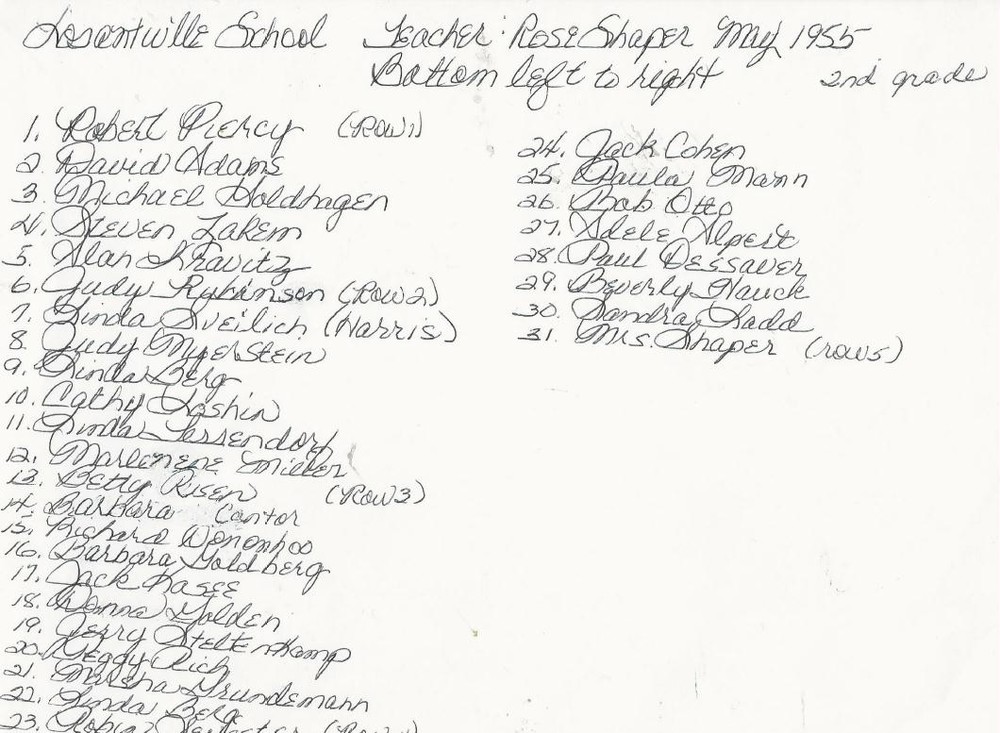 Losantiville School Teacher: Rose Shaper May 1955
Bottom left to right 2nd grade
1. Robert Piercy (Row 1)
2. David Adams
3. Michael Holdhagen
4. Steven Lakem
5. Alan Kravitz
6. Judy Rubinson (Row 2)
7. Linda Sveilich (Harris)
8. Judy Myerstein
9. Linda Berg
10. Cathy Loshin
11. Linda Lessendorf
12. Marlenene Miller
13. Betty Risen (Row 3)
14. Barbara Cantor
15. Richard
16. Barbara Goldberg
17. Jack Kasee
18. Donna Golden
19. Jerry Steltenkamp
20. Peggy Rich
21. Marsha Grundemann
22. Linda Berg
23. Robin
24. Jack Cohen
25. Paula Mann
26. Bob Otto
27. Adele Alpert
28. Paul Dessauer
29. Beverly Hauck
30. Sandra Ladd
31. Mrs. Shaper (row 5)